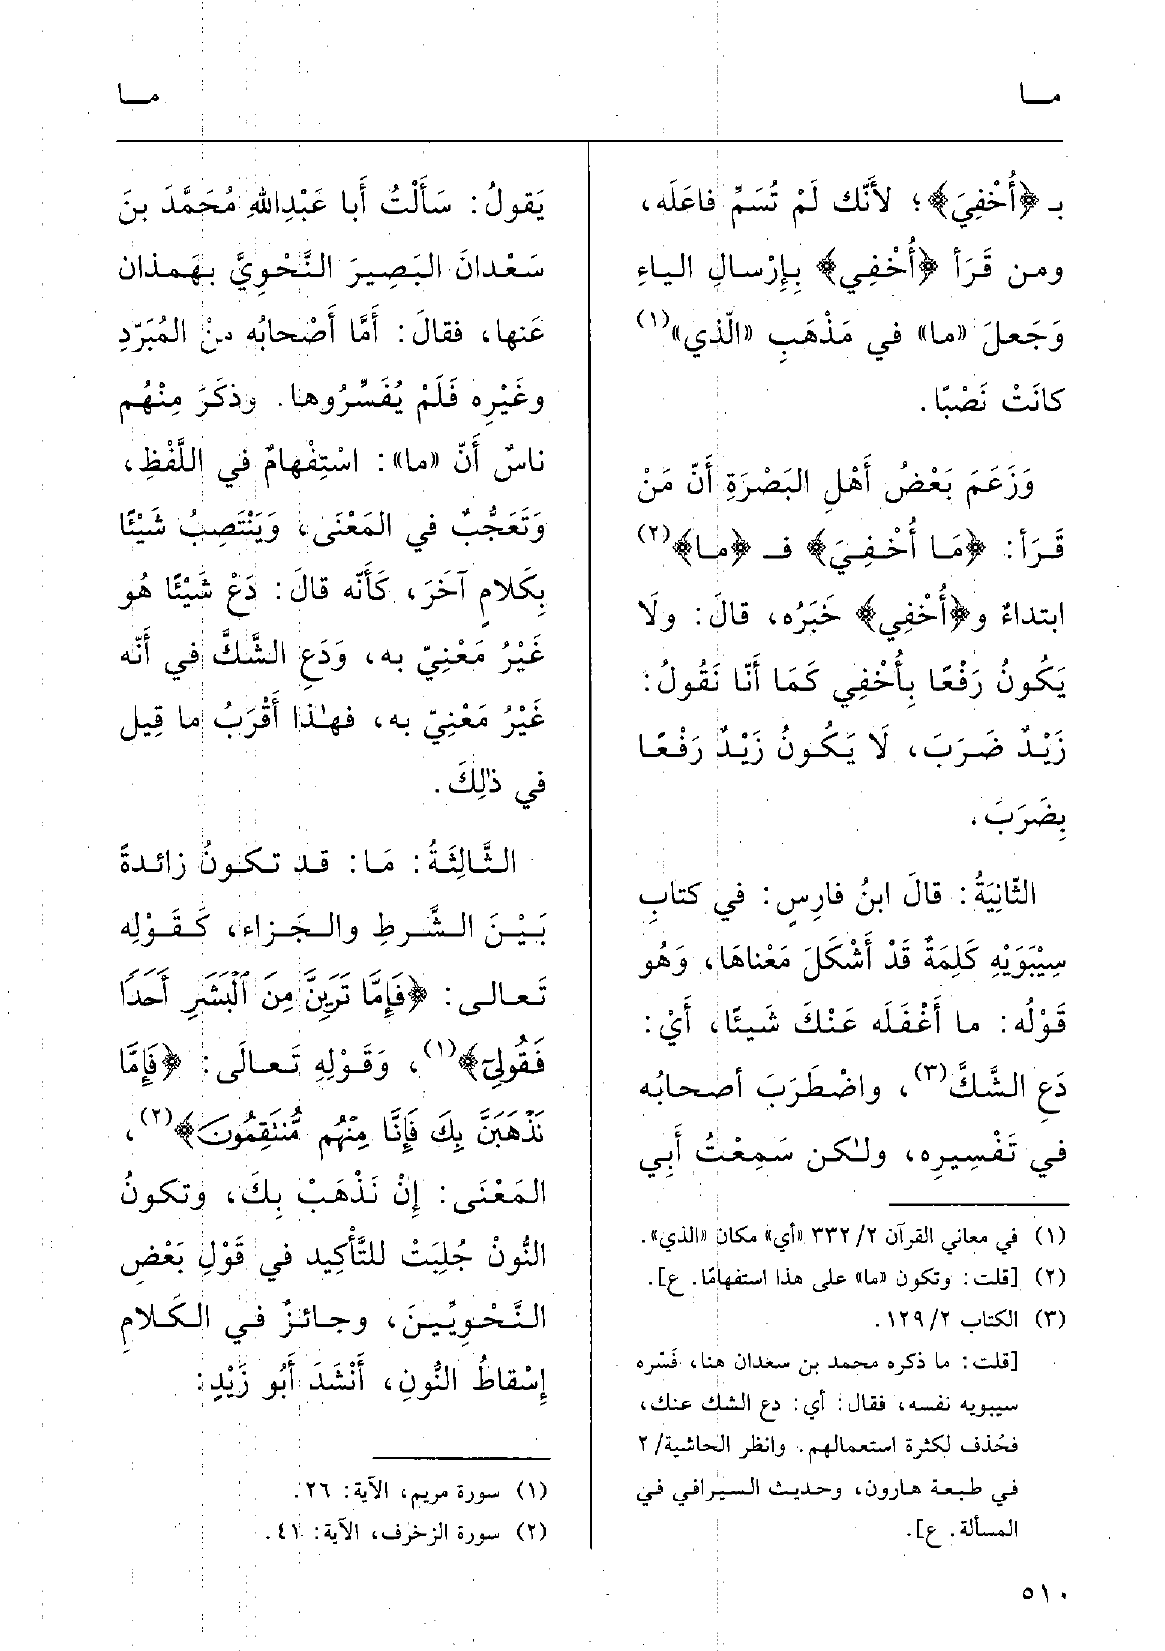 مـــا
مـــا
بـ ﴿أُخْفِيَ﴾؛ لأَنَّك لَمْ تُسَمِّ فاعَلَه،
ومن قَرَأ ﴿أُخْفِي﴾ بِإِرْسالِ الياءِ
وَجَعلَ «ما» في مَذْهَبِ «الّذي»(١)
كانَتْ نَصْبًا.
وَزَعَمَ بَعْضُ أَهْلِ البَصْرَةِ أَنّ مَنْ
قَرَأ: ﴿مَا أُخْفِيَ﴾ فـ ﴿ما﴾(٢)
ابتداءٌ و﴿أُخْفِي﴾ خَبَرُه، قالَ: ولَا
يَكُونُ رَفْعًا بِأُخْفِي كَمَا أَنّا نَقُولُ:
زَيْدٌ ضَرَبَ، لَا يَكُونُ زَيْدٌ رَفْعًا
بِضَرَبَ.
الثّانِيَةُ: قالَ ابنُ فارِسٍ: في كتابِ
سِيْبَوَيْهِ كَلِمَةٌ قَدْ أَشْكَلَ مَعْناهَا، وَهُو
قَوْلُه: ما أَغْفَلَه عَنْكَ شَيئًا، أَيْ:
دَعِ الشَّكَّ(٣)، واضْطَرَبَ أصحابُه
في تَفْسِيرِه، ولٰكن سَمِعْتُ أَبِي
(١) في معاني القرآن ٣٣٢/٢ «أي» مكان «الذي».
(٢) [قلت: وتكون «ما» على هذا استفهامًا. ع].
(٣) الكتاب ١٢٩/٢.
[قلت: ما ذكره محمد بن سعدان هنا، فَسّره
سيبويه نفسه، فقال: أي: دع الشك عنك،
فحُذف لكثرة استعمالهم. وانظر الحاشية/ ٢
في طبعة هارون، وحديث السيرافي في
المسألة. ع].
يَقولُ: سَأَلْتُ أَبا عَبْدِاللهِ مُحَمَّدَ بنَ
سَعْدانَ البَصِيرَ النَّحْوِيَّ بِهَمذان
عَنها، فقالَ: أَمَّا أَصْحابُه منْ المُبَرّدِ
وغَيْرِه فَلَمْ يُفَسِّرُوها. وذكَرَ مِنْهُم
ناسٌ أَنّ «ما»: اسْتِفْهامٌ في اللَّفْظِ،
وَتَعَجُّبٌ في المَعْنَى، وَيَنْتَصِبُ شَيْئًا
بِكَلامٍ آخَرَ، كَأَنّه قالَ: دَعْ شَيْئًا هُو
غَيْرُ مَعْنِيّ به، وَدَعِ الشَّكَّ في أَنّه
غَيْرُ مَعْنِيّ به، فهٰذا أَقْرَبُ ما قِيل
في ذٰلِكَ.
الثَّالِثَةُ: مَا: قد تكونُ زائدةً
بَيْنَ الشَّرطِ والجَزاء، كَقَوْلِه
تَعالى: ﴿فَإِمَّا تَرَيِنَّ مِنَ ٱلْبَشَرِ أَحَدًا
فَقُولِىٓ﴾(١)، وَقَوْلِهِ تَعالَى: ﴿فَإِمَّا
نَذْهَبَنَّ بِكَ فَإِنَّا مِنْهُم مُّنتَقِمُونَ﴾(٢)،
المَعْنَى: إِنْ نَذْهَبْ بِكَ، وتكونُ
النُّونُ جُلِبَتْ للتَّأْكِيد في قَوْلِ بَعْضِ
النَّحْوِيِّينَ، وجائزٌ في الكَلامِ
إِسْقاطُ النُّونِ، أَنْشَدَ أَبُو زَيْدٍ:
(١) سورة مريم، الآية: ٢٦.
(٢) سورة الزخرف، الآية: ٤١.
٥١٠